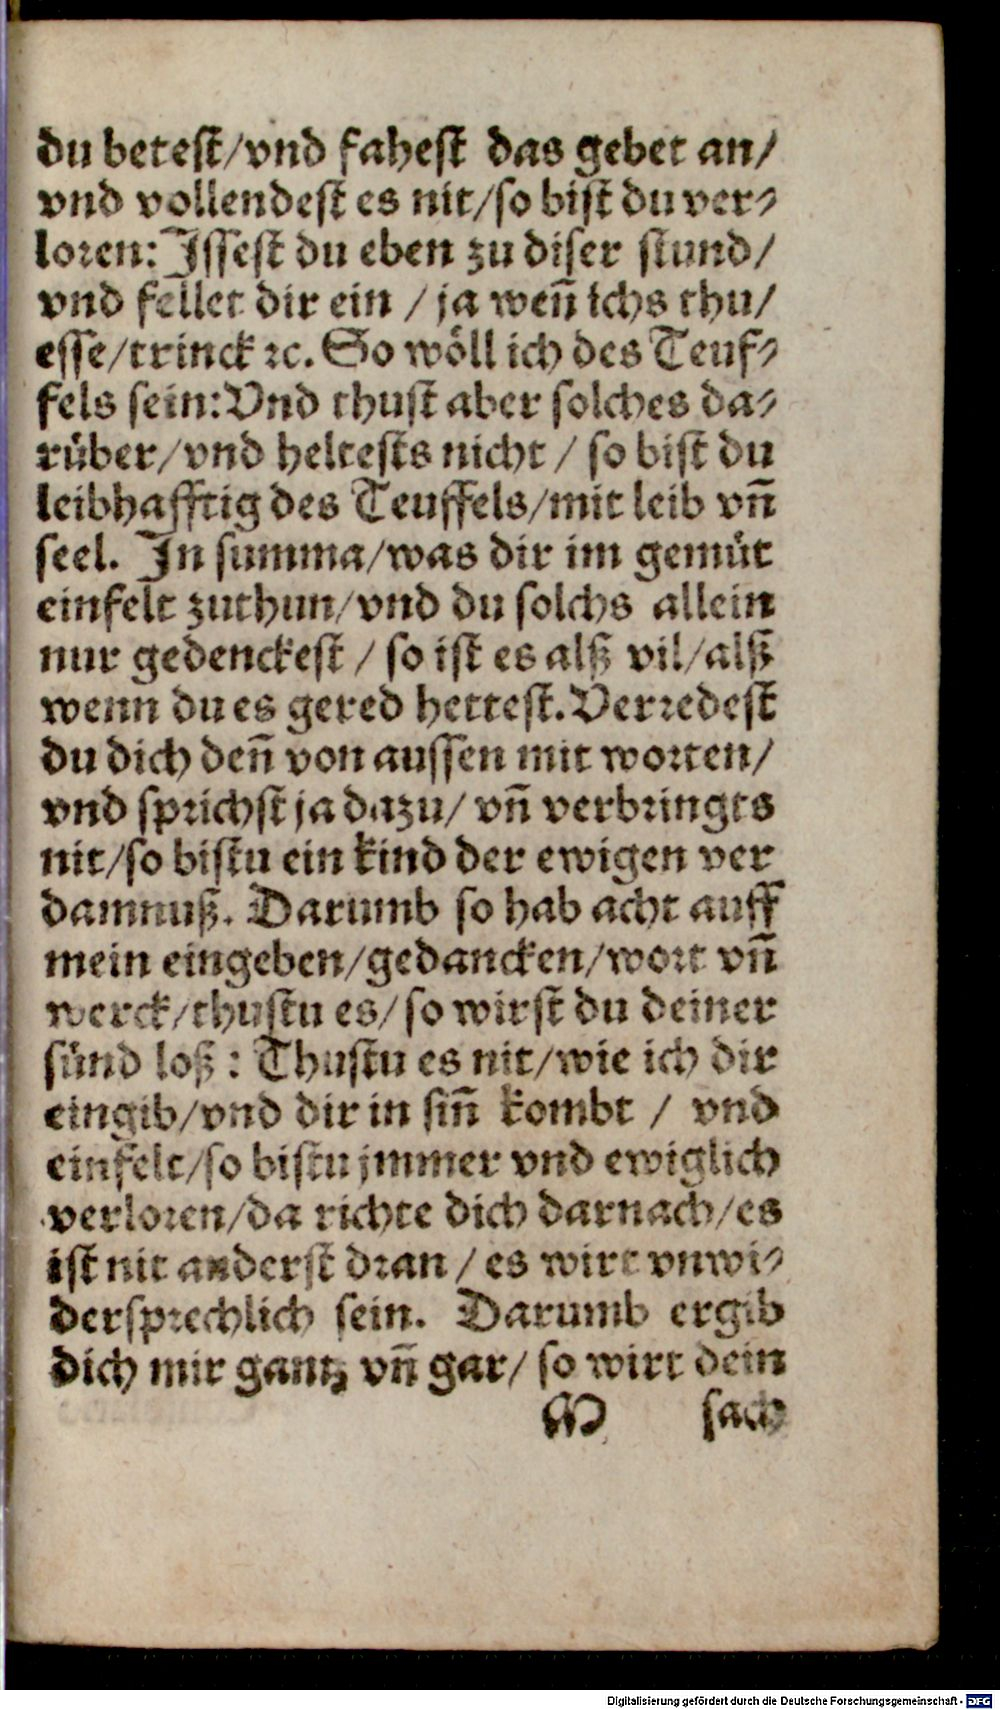 du betest/vnd fahest das gebet an/
vnd vollendest es nit/so bist du ver⸗
loren: Issest du eben zu diser stund/
vnd fellet dir ein / ja weñ ichs thu/
esse/trinck ꝛc. So wöll ich des Teuf⸗
fels sein: Vnd thust aber solches da⸗
rüber/vnd heltests nicht / so bist du
leibhafftig des Teuffels/mit leib vñ
seel. In summa/was dir im gemüt
einfelt zuthun/vnd du solchs allein
nur gedenckest / so ist es alß vil/alß
wenn du es gered hettest. Verredest
du dich deñ von aussen mit worten/
vnd sprichst ja dazu/ vñ verbringts
nit/so bistu ein kind der ewigen ver
damnuß. Darumb so hab acht auff
mein eingeben/gedancken/wort vñ
werck/thustu es/so wirst du deiner
sünd loß : Thustu es nit/wie ich dir
eingib/vnd dir in siñ kombt / vnd
einfelt/so bistu jmmer vnd ewiglich
verloren/da richte dich darnach/es
ist nit anderst dran / es wirt vnwi⸗
dersprechlich sein. Darumb ergib
dich mir gantz vñ gar/ so wirt dein
M sach
Digitalisierung gefördert durch die Deutsche Forschungsgemeinschaft - DFG